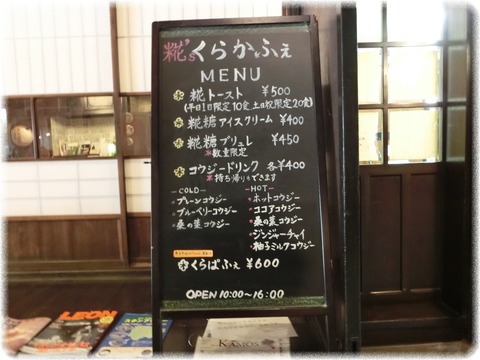 糀'sくらかふぇ
MENU
糀トースト ¥500
(平日1日限定10食、土日祝限定20食)
糀糖アイスクリーム ¥400
糀糖ブリュレ ¥450
※数量限定
コウジードリンク 各¥400
※持ち帰りもできます
—COLD—
プレーンコウジー
ブルーベリーコウジー
桑の葉コウジー
—HOT—
ホットコウジー
ココアコウジー
桑の葉コウジー
ジンジャーチャイ
柚子ミルクコウジー
くらぱふぇ ¥600
OPEN 10:00~16:00
LEON
KAMOS